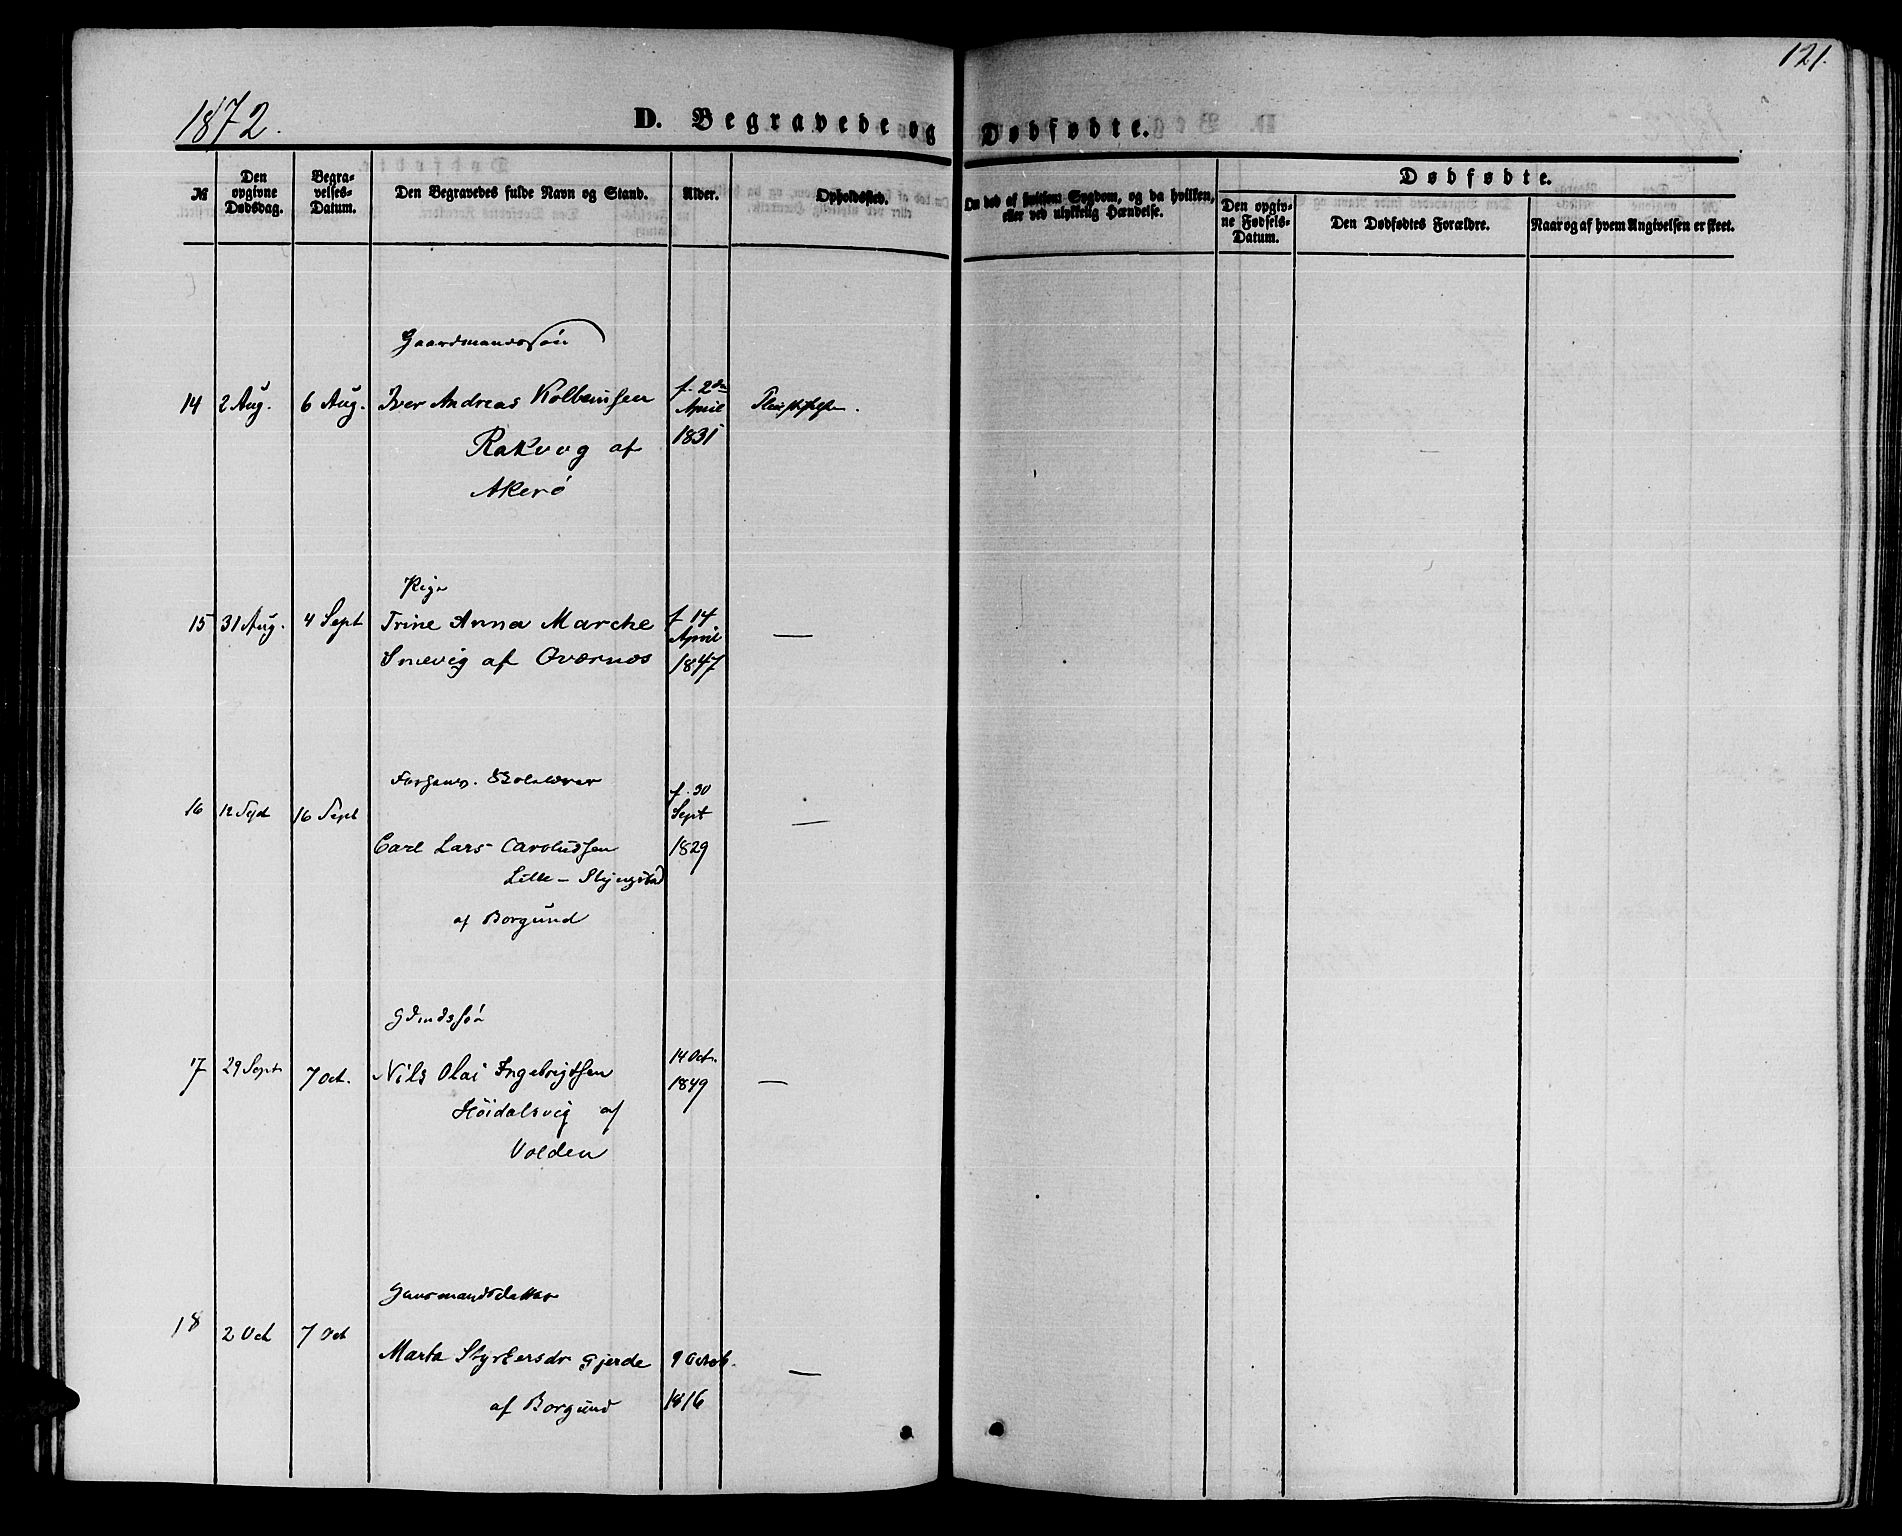 121.
1872.
D. Begravede og Dødfødte.
№
Den opgivne Dødsdag.
Begravelses-Datum.
Den Begravedes fulde Navn og Stand.
Alder.
Opholdssted.
Om død af smitsom Sygdom, og da hvilken, eller ved ulykkelig Hændelse.
Dødfødte.
Den opgivne Fødsels-Datum.
Den Dødfødtes Forældre.
Naar og af hvem Angivelsen er skeet.
Gaardmandssøn
14 2 Aug. 6 Aug. Iver Andreas Kolbeinsen f. 2den April 1831
Rakvog af
Akerø
Pige
15 31 Aug. 4 Sept Trine Anna Marthe f 14 April 1847 —
af
Skolelærer
16 12 Sept 16 Sept f. 30 Sept 1829 —
Carl Lars Carolussen
Lille-
af Borgund
Gdmdssøn
17 29 Sept 7 Oct. Nils Olai Ingebrigtsen 14 Oct. 1849 —
Höidalsvig af
Volden
Gaardmandsdatter
18 2 Oct 7 Oct
Marta Styrkersdr Gjerde 9 Octob. 1816 —
af Borgund